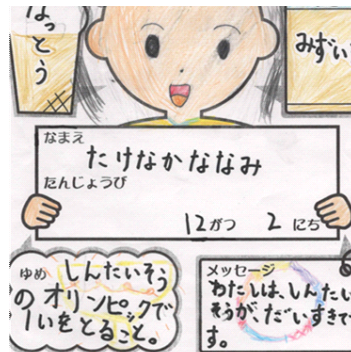 なっとう
みずい
なまえ
たけなかななみ
たんじょうび
12がつ 2にち
ゆめ
しんたいそう
のオリンピックで
1いをとること。
メッセージ
わたしは、しんたい
そうが、だいすきで
す。